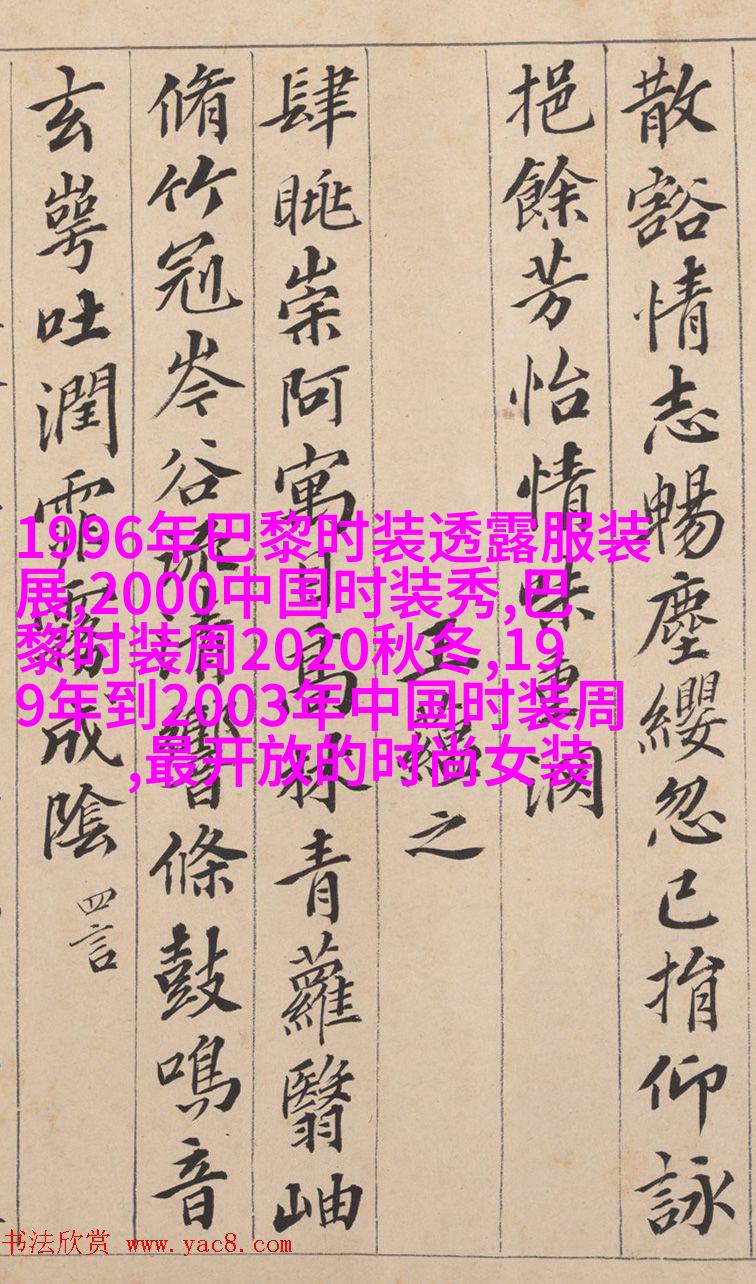 散豁情志暢塵纓忽已捐仰詠
挹餘芳怡情味重淵
王 之
肆眺崇阿寓目高林青蘿翳岫
脩竹冠岑谷流清響條鼓鳴音
玄崿吐潤霏霧成陰 四言
1996年巴黎时装透露服装
展,2000中国时装秀,巴
黎时装周2020秋冬,19
9年到2003年中国时装周
,最开放的时尚女装
书法欣赏 www.yac8.com